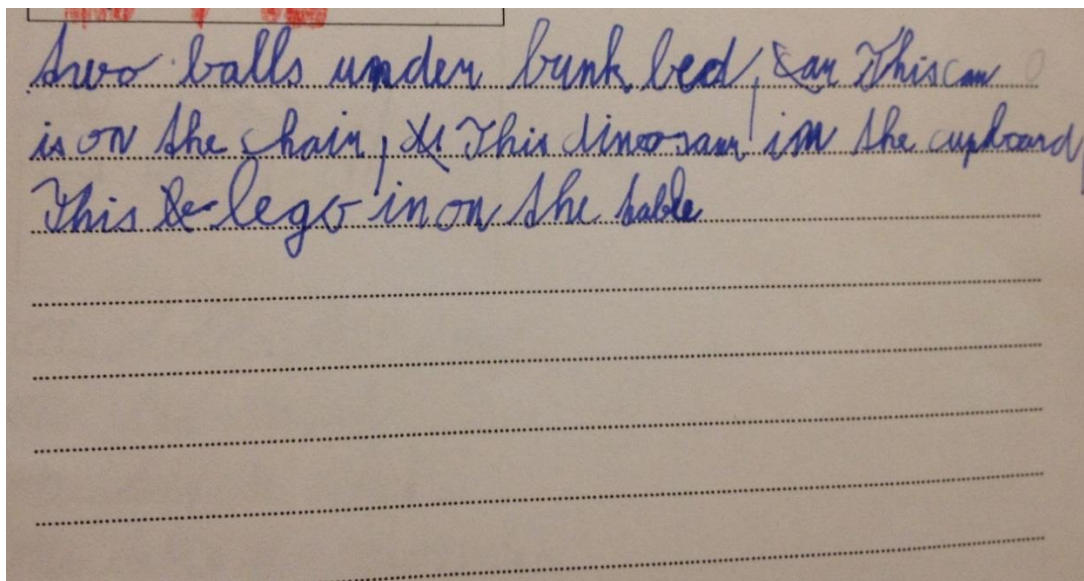 two balls under bunk bed, car This car
is on the chair, This dinosaur in the cupboard,
This lego in on the table